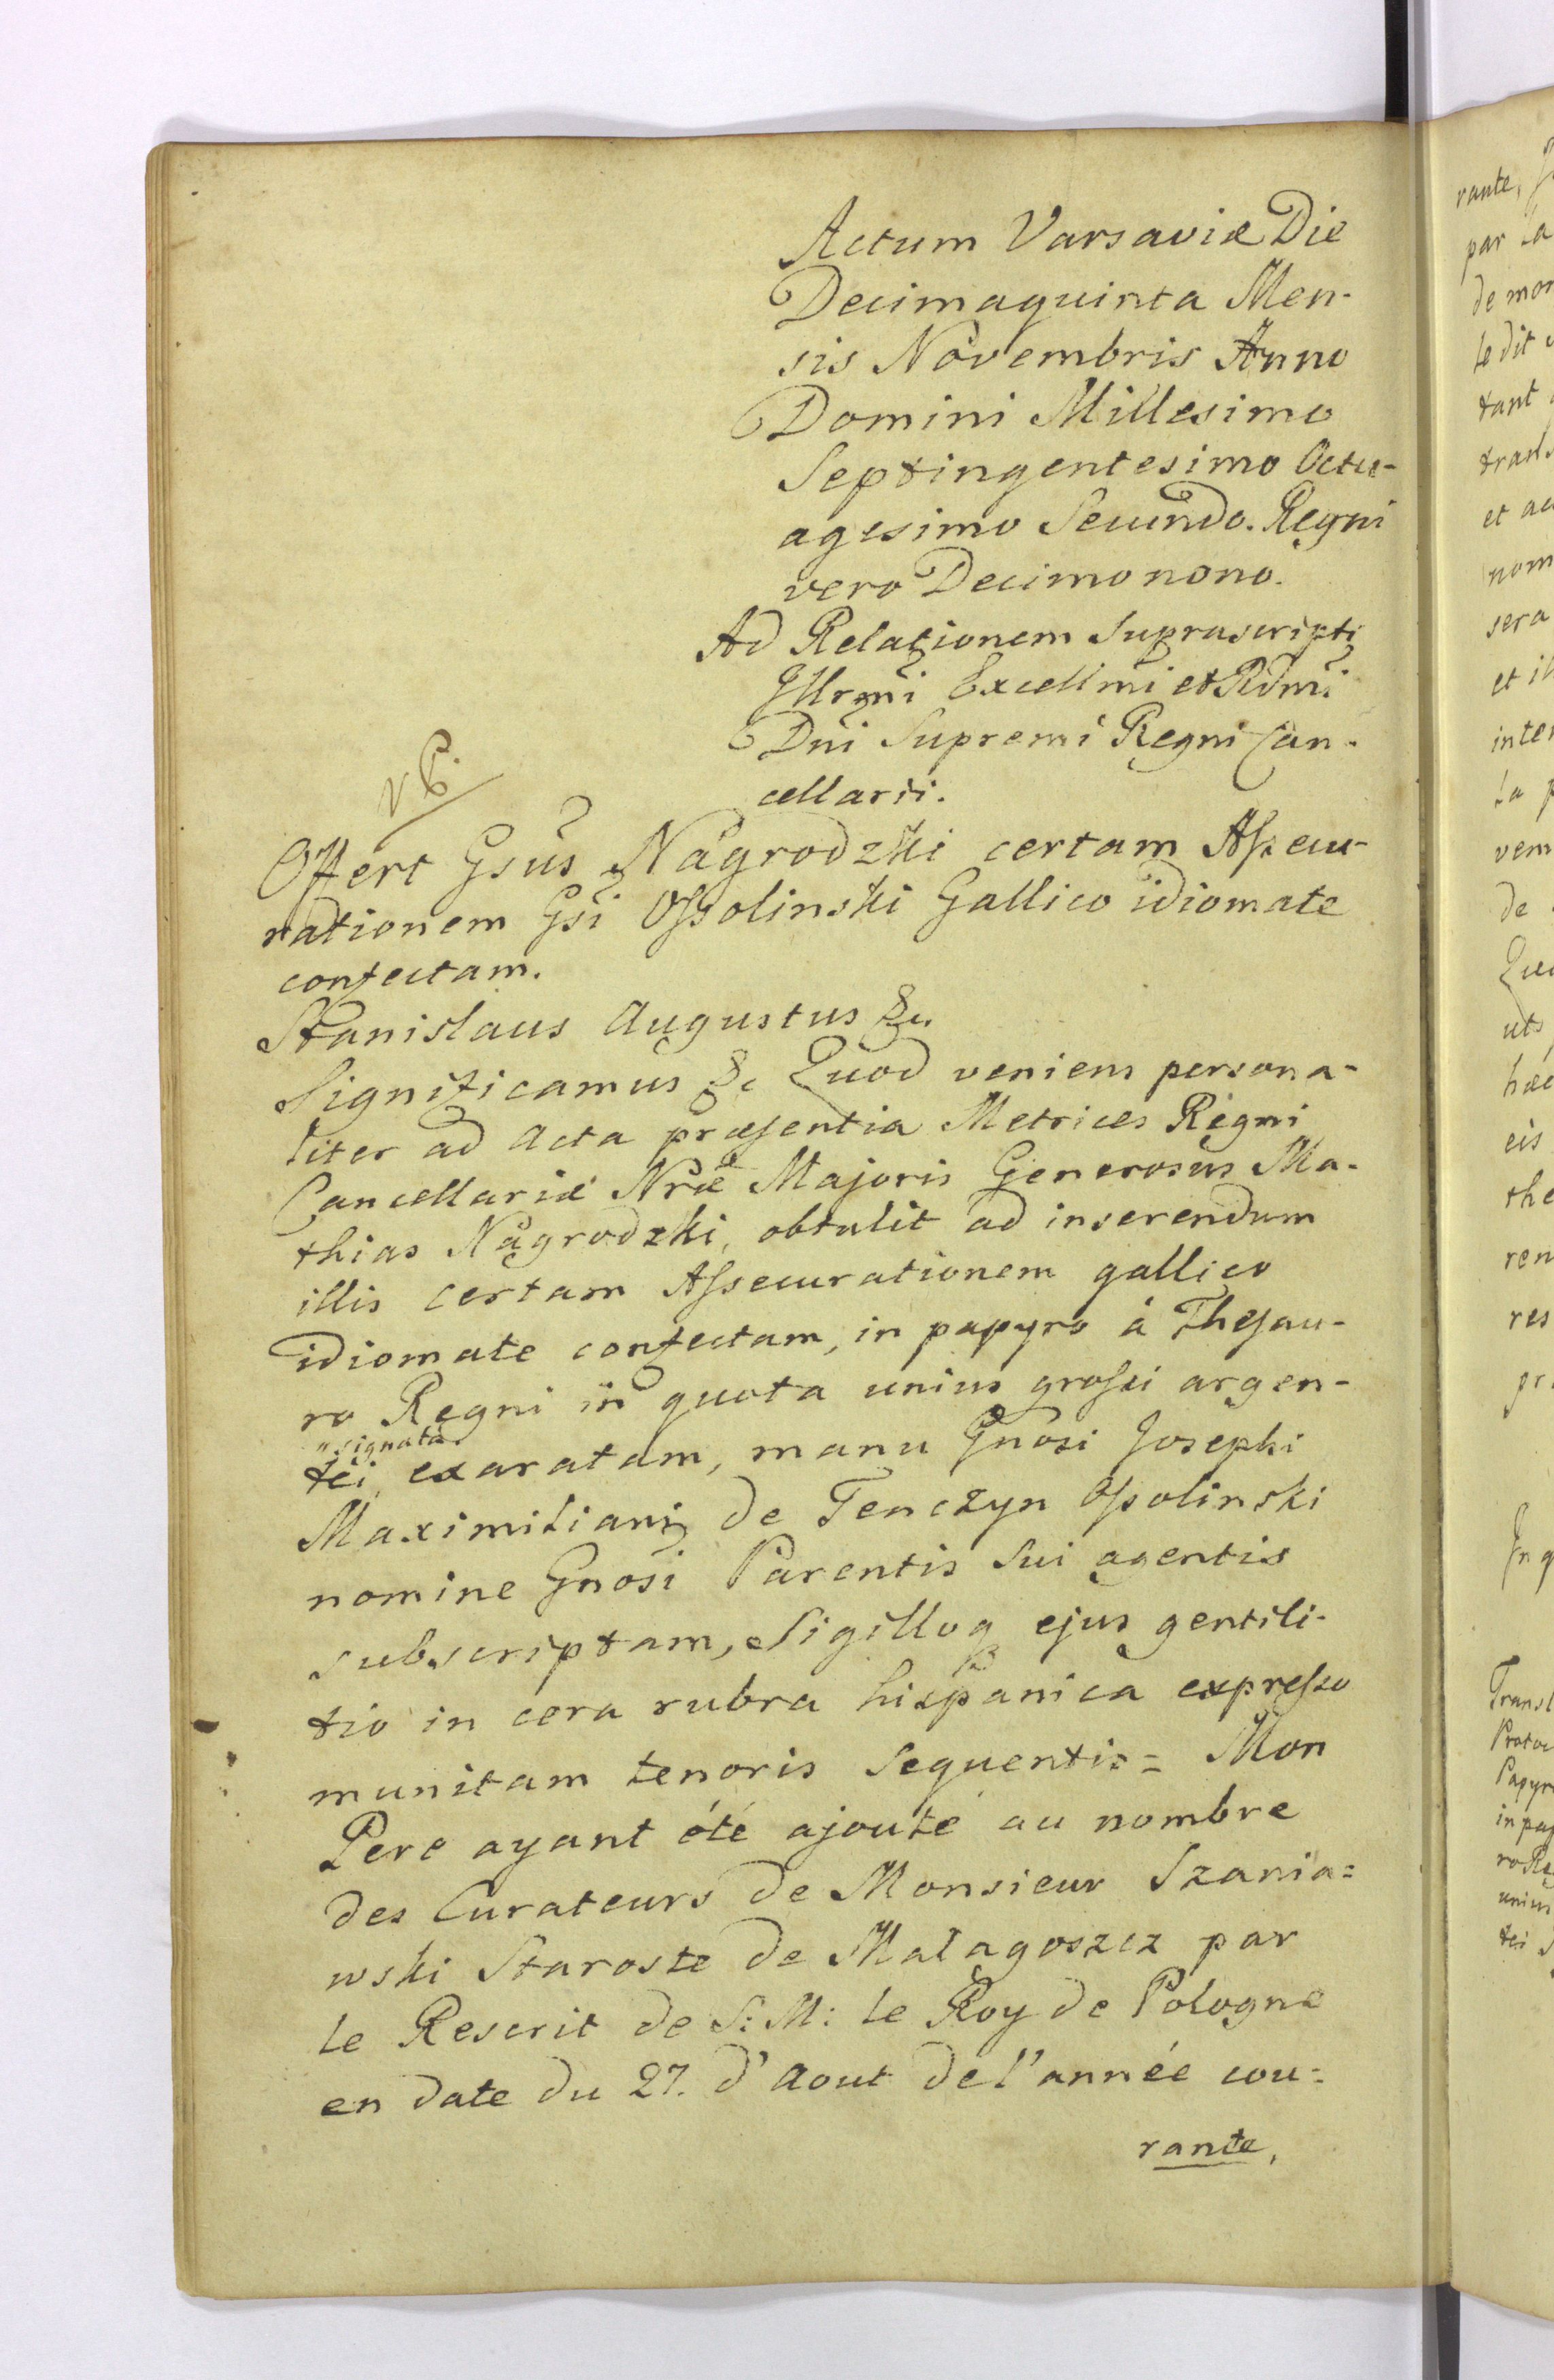 Actum Varsaviæ Die
Decimaquinta Men-
sis Novembris Anno
Domini Millesimo
Septingentesimo Octu-
agesimo Secundo. Regni
vero Decimo nono.
Ad Relationem Suprascripti
Illrmi Excellmi et Rdmi
Dni Supremi Regni Can-
cellarii.
Offert Gsus Nagrodzki certam Assecu-
rationem Gsi Ossolinski Gallico idiomate
confectam.
Stanislaus Augustus &c.
Significamus &c Quod veniens persona-
liter ad Acta præsentia Metrices Regni
Cancellariæ Nræ Majoris Generosus Ma-
thias Nagrodzki, obtulit ad inserendum
illis certam Assecurationem gallico
idiomate confectam, in papyro à Thesau-
ro Regni in quota unius grossi argen-
"signata
tei, exaratam, manu Gnosi Josephi
Maximiliani de Tenczyn Ossolinski
nomine Gnosi Parentis Sui agentis
subscriptam, Sigilloq ejus gentili-
tio in cera rubra hispanica expresso
munitam tenoris sequentis = Mon
Pere ayant été ajouté au nombre
des Curateurs de Monsieur Szania=
wski Staroste de Małagoszcz par
le Rescrit de S: M: le Roy de Pologne
en date du 27. d'Aout de l'année cou=
rante,
rante,
par la
de mon
le dit
tant
trans
et ac
nom
sera
et il
inter
la p
vem
de
uts
hæc
eis
the
ren
res
pr
In q
Transl
Protoc
Papyr
in pap
ro Re
unius
tei